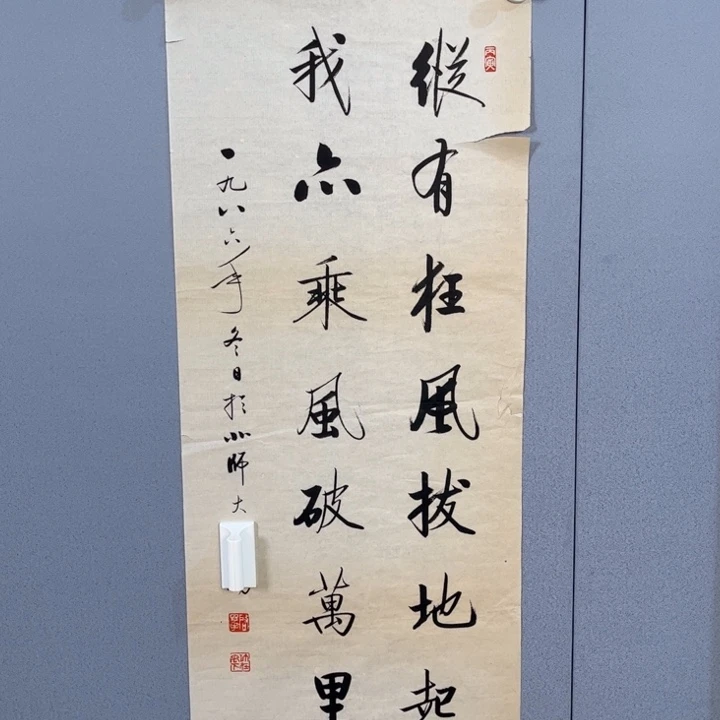 丙寅
縱有狂風拔地起
我亦乘風破萬里
一九八六年冬日於北師大